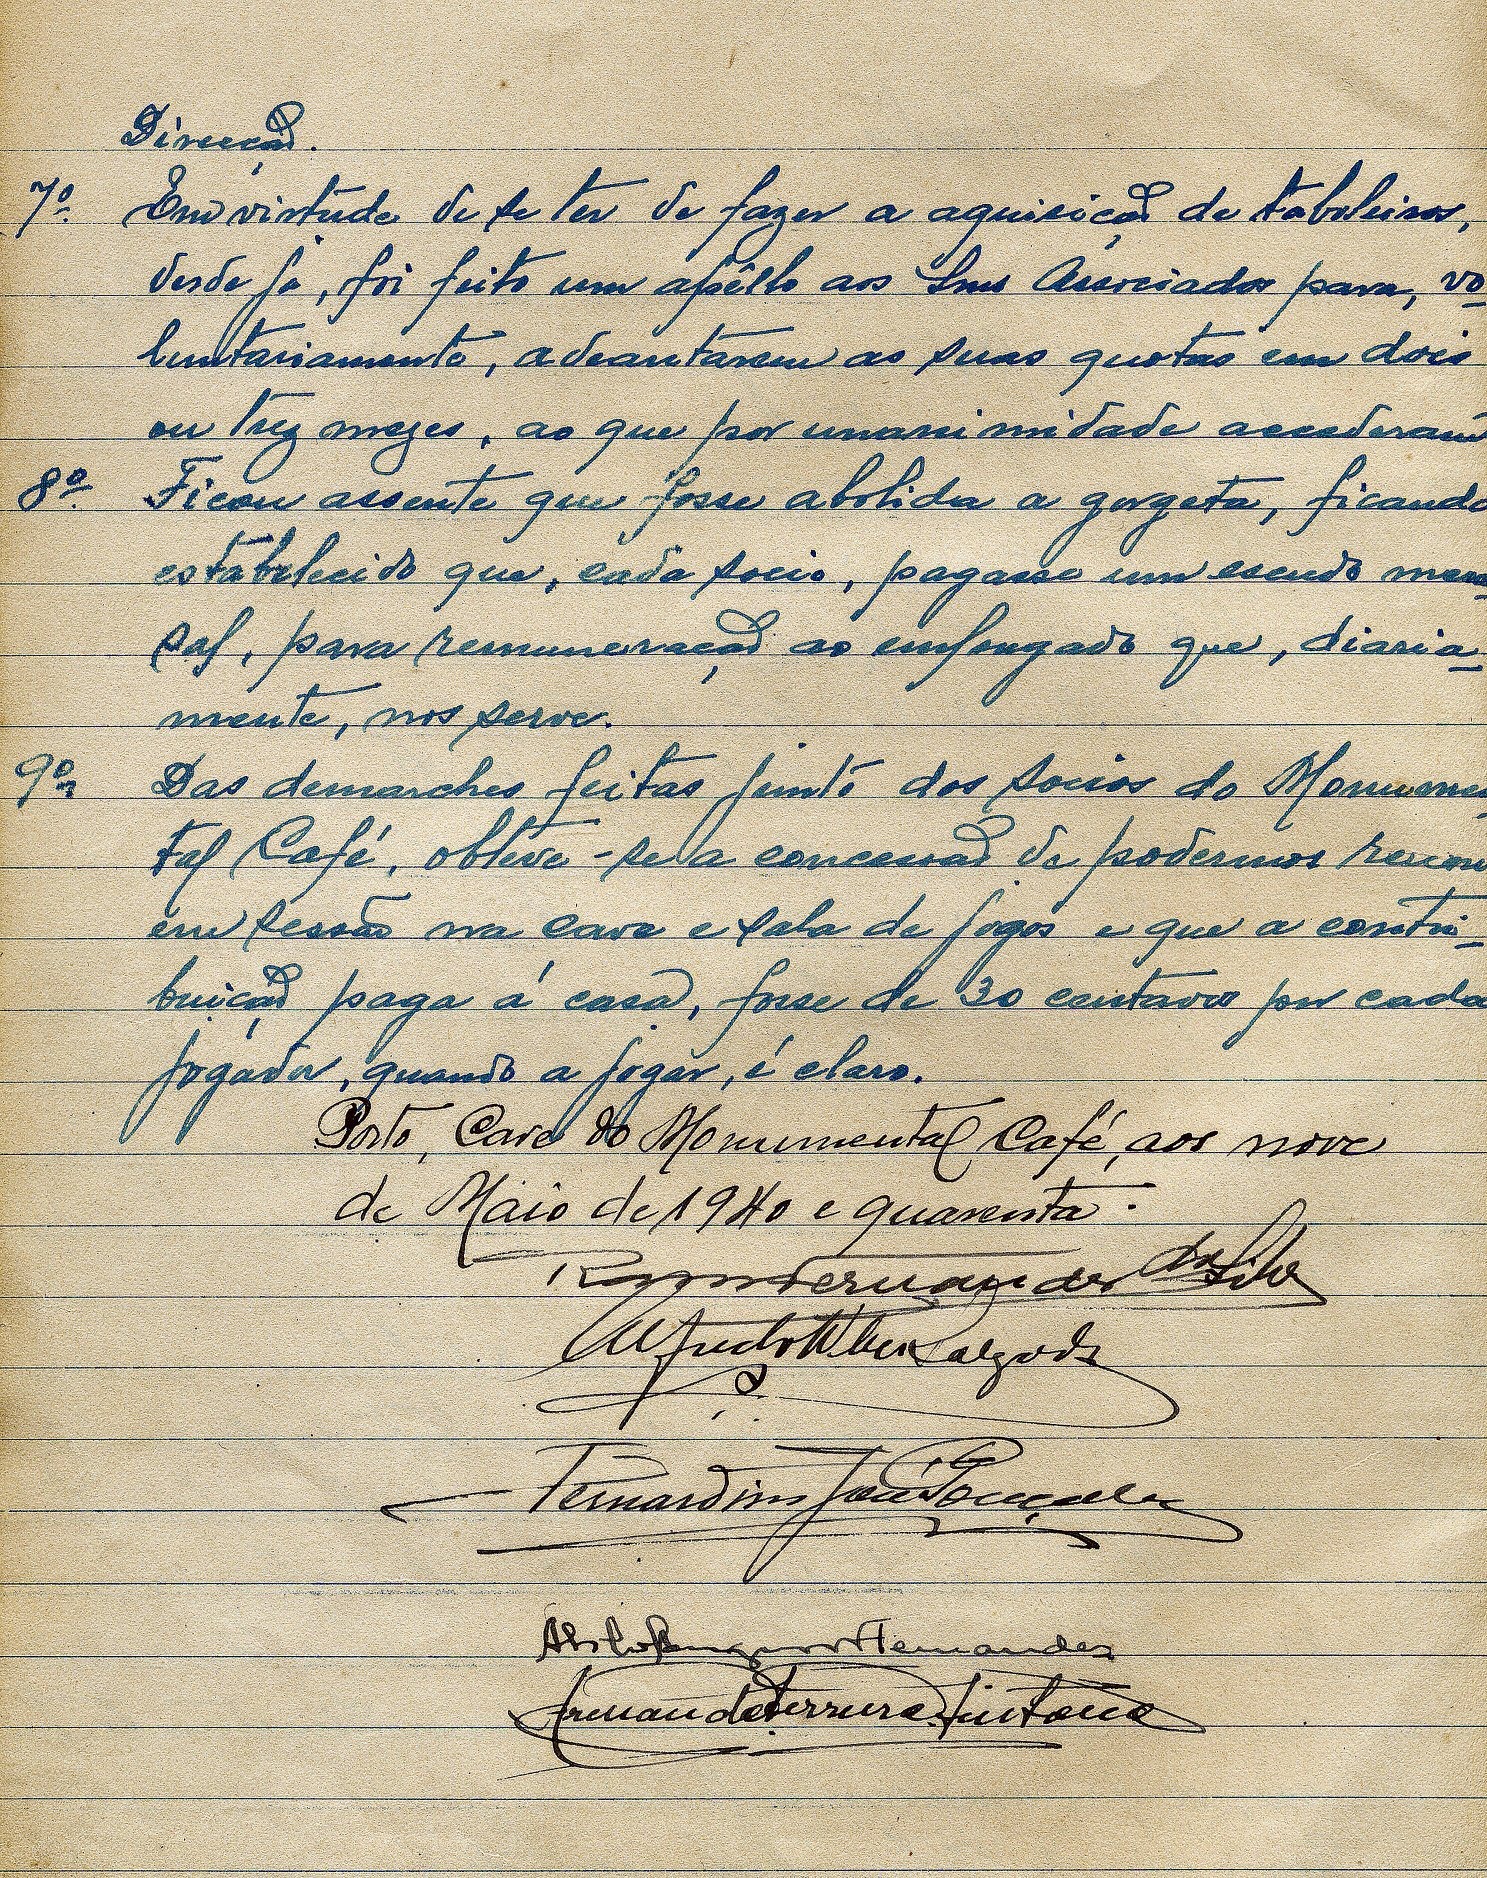 Direcção.
7º. Em virtude de se ter de fazer a aquisição de taboleiros,
desde já, foi feito um apêllo aos Snrs Associados para, vo-
luntariamente, adeantarem as suas quotas em dois
ou trez mezes, ao que por unanimidade accederam
8º. Ficou assente que fosse abolida a gorgeta, ficando
estabelecido que, cada socio, pagasse um escudo men-
sal, para remuneração ao empregado que, diaria-
mente, nos serve.
9º. Das demarches feitas junto dos socios do Monumen-
tal Café, obteve-se a concessão de podermos reunir
em sessão na cave e sala de jogos e que a contri-
buição paga á casa, fosse de 30 centavos por cada
jogador, quando a jogar, é claro.
Porto, Cave do Monumental Café, aos nove
de Maio de 1940 e quarenta.
Fernandes da Silva
Alfredo Salgado
Bernardino José Gonçalves
Fernandes
Armando Ferreira